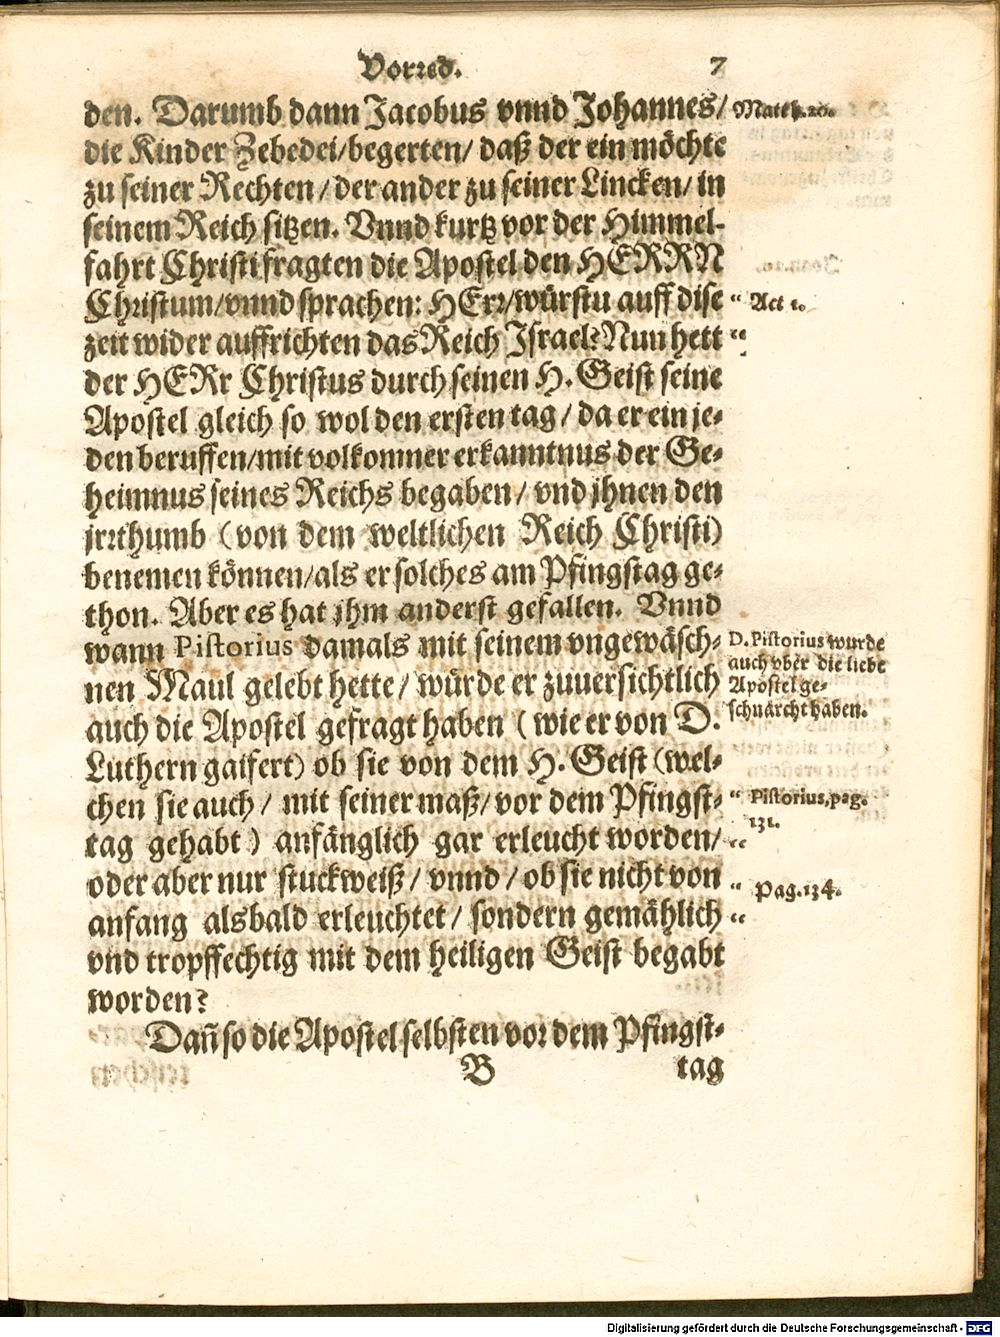 Vorred. 7
den. Darumb dann Jacobus vnnd Johannes/
Matth. 20.
die Kinder Zebedei/begerten/ daß der ein möchte
zu seiner Rechten/ der ander zu seiner Lincken/ in
seinem Reich sitzen. Vnnd kurtz vor der Himmel-
fahrt Christi fragten die Apostel den HERRN
Christum/vnnd sprachen: HErr/würstu auff dise
“ Act 1.
zeit wider auffrichten das Reich Israel? Nun hett
“
der HERr Christus durch seinen H. Geist seine
Apostel gleich so wol den ersten tag/ da er ein je-
den beruffen/mit volkomner erkanntnus der Ge-
heimnus seines Reichs begaben/ vnd jhnen den
jrrthumb (von dem weltlichen Reich Christi)
benemen können/als er solches am Pfingstag ge-
thon. Aber es hat jhm anderst gefallen. Vnnd
wann Pistorius damals mit seinem vngewäsch-
D. Pistorius wurde
auch vber die liebe
Apostel ge-
schnarcht haben.
nen Maul gelebt hette/ würde er zuuersichtlich
auch die Apostel gefragt haben (wie er von D.
Luthern gaifert) ob sie von dem H. Geist (wel-
chen sie auch/ mit seiner maß/ vor dem Pfingst-
“ Pistorius, pag.
131.
tag gehabt) anfänglich gar erleucht worden/
“
oder aber nur stuckweiß/ vnnd/ ob sie nicht von
“ Pag. 134.
anfang alsbald erleuchtet/ sondern gemählich
“
vnd tropffechtig mit dem heiligen Geist begabt
worden?
Dañ so die Apostel selbsten vor dem Pfingst-
B tag
Digitalisierung gefördert durch die Deutsche Forschungsgemeinschaft - DFG